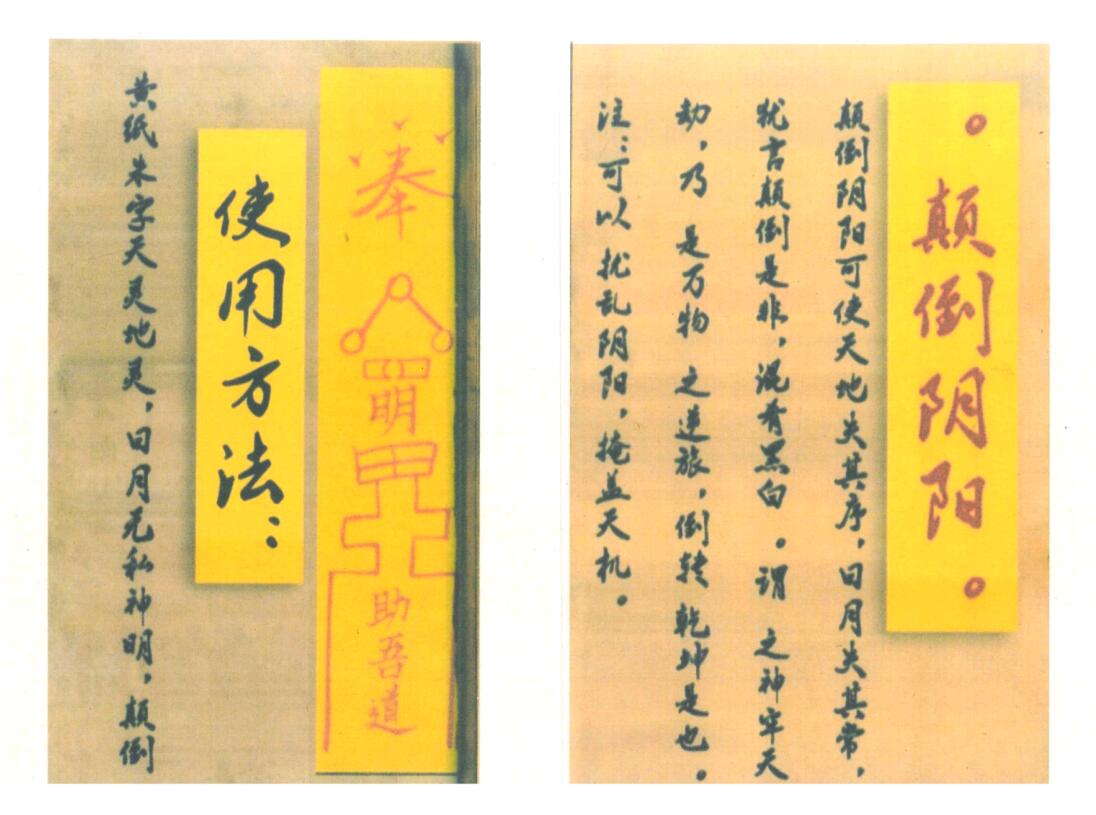 。颠倒阴阳。
颠倒阴阳可使天地失其序，日月失其常，
犹言颠倒是非，混肴黑白。谓之神牢天
劫，乃是万物之逆旅，倒转乾坤是也。
注：可以扰乱阴阳，掩盖天机。
助吾道
使用方法：
黄纸朱字天灵地灵，日月无私神明，颠倒